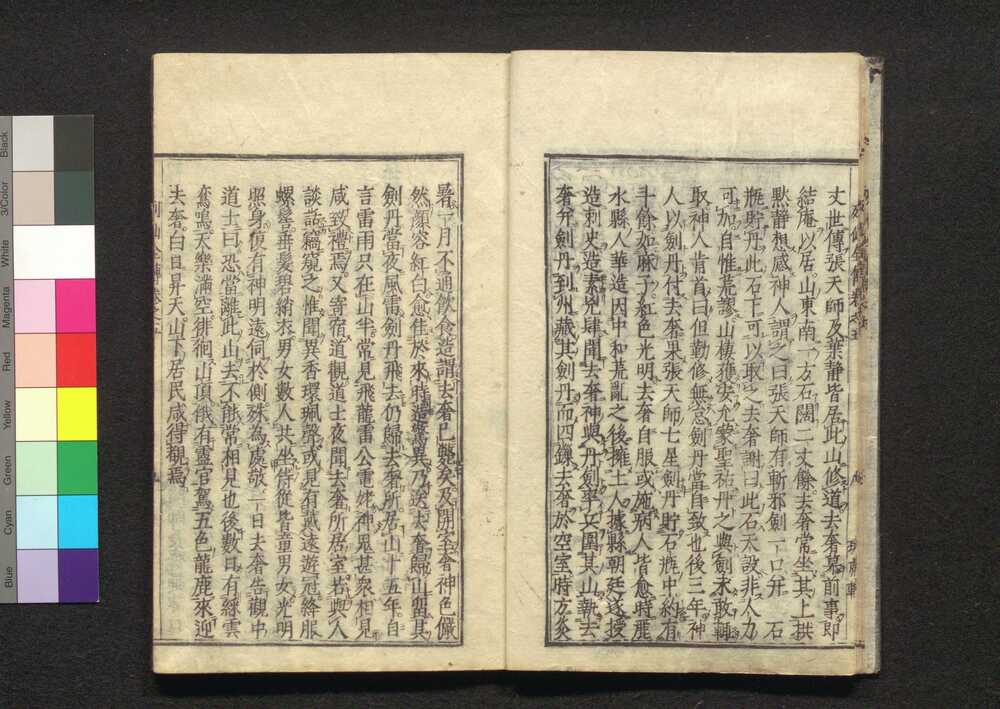 丈世傳張天師及葉靜皆居此山修道去奢慕前事即
結庵以居山東南一方石闊二丈餘去奢常坐其上拱
默靜想感神人謂之曰張天師有斬邪劍一口并石
瓶貯丹此石下可以取之去奢謝曰此石天設非人力
可加自惟荒謬山棲獲安尤蒙聖祐丹之與劍未敢輙
取神人肯首曰但勤修無怠劍丹當自致也後三年神
人以劍丹付去奢果張天師七星劍丹貯石瓶中約有
十餘如麻子紅色光明去奢自服或施病人皆愈時麗
水縣人華造因中和荒亂之後擁土人據縣朝廷遂授
造刺史造素兇肆聞去奢神與丹劍率兵圍其山執去
奢并劍丹到州藏其劍丹而四鎖去奢於空室時方炎
暑一月不通飲食造謂去奢已斃矣及開室奢神色儼
然顏容紅白愈佳於來時造驚異乃送去奢歸山與其
劍丹當夜風雷劍丹飛去仍歸去奢所居山十五年自
言雷雨只在山半常見飛龍雷公電姥神鬼甚衆相見
咸致禮焉又寄宿道觀道士夜聞去奢所居室若與人
談話竊窺之惟聞異香環珮聲或見有戴遠遊冠絳服
螺髻垂髮碧綃衣男女數人共坐侍從皆童男女光明
照身復有神明遠伺於側殊為處敬一日去奢告觀中
道士曰恐當離此山去不能常相見也後數日有綵雲
鸞鳴天樂滿空徘徊山頂俄有靈官駕五色龍鹿來迎
去奢白日昇天山下居民咸得覩焉
Black
3/Color
White
Magenta
Red
Yellow
Green
Cyan
Blue